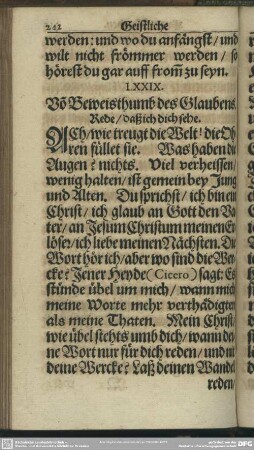 242 Geistliche
werden: und wo du anfängst / und
wilt nicht frömmer werden / so
hörest du gar auff from̃ zu seyn.
LXXIX.
Võ Beweisthumb des Glaubens.
Rede / daß ich dich sehe.
ACh / wie treugt die Welt! die Oh
ren füllet sie. Was haben die
Augen? nichts. Viel verheissen /
wenig halten / ist gemein bey Jung
und Alten. Du sprichst / ich bin ein
Christ / ich glaub an Gott den Va
ter / an Jesum Christum meinen Er
löser / ich liebe meinen Nächsten. Die
Wort hör ich / aber wo sind die Wer
cke? Jener Heyde (Cicero) sagt: Es
stünde übel um mich / wann mich
meine Worte mehr verthädigten
als meine Thaten. Mein Christ /
wie übel stehts umb dich / wann dei
ne Wort nur für dich reden / und nit
deine Wercke? Laß deinen Wandel
reden /